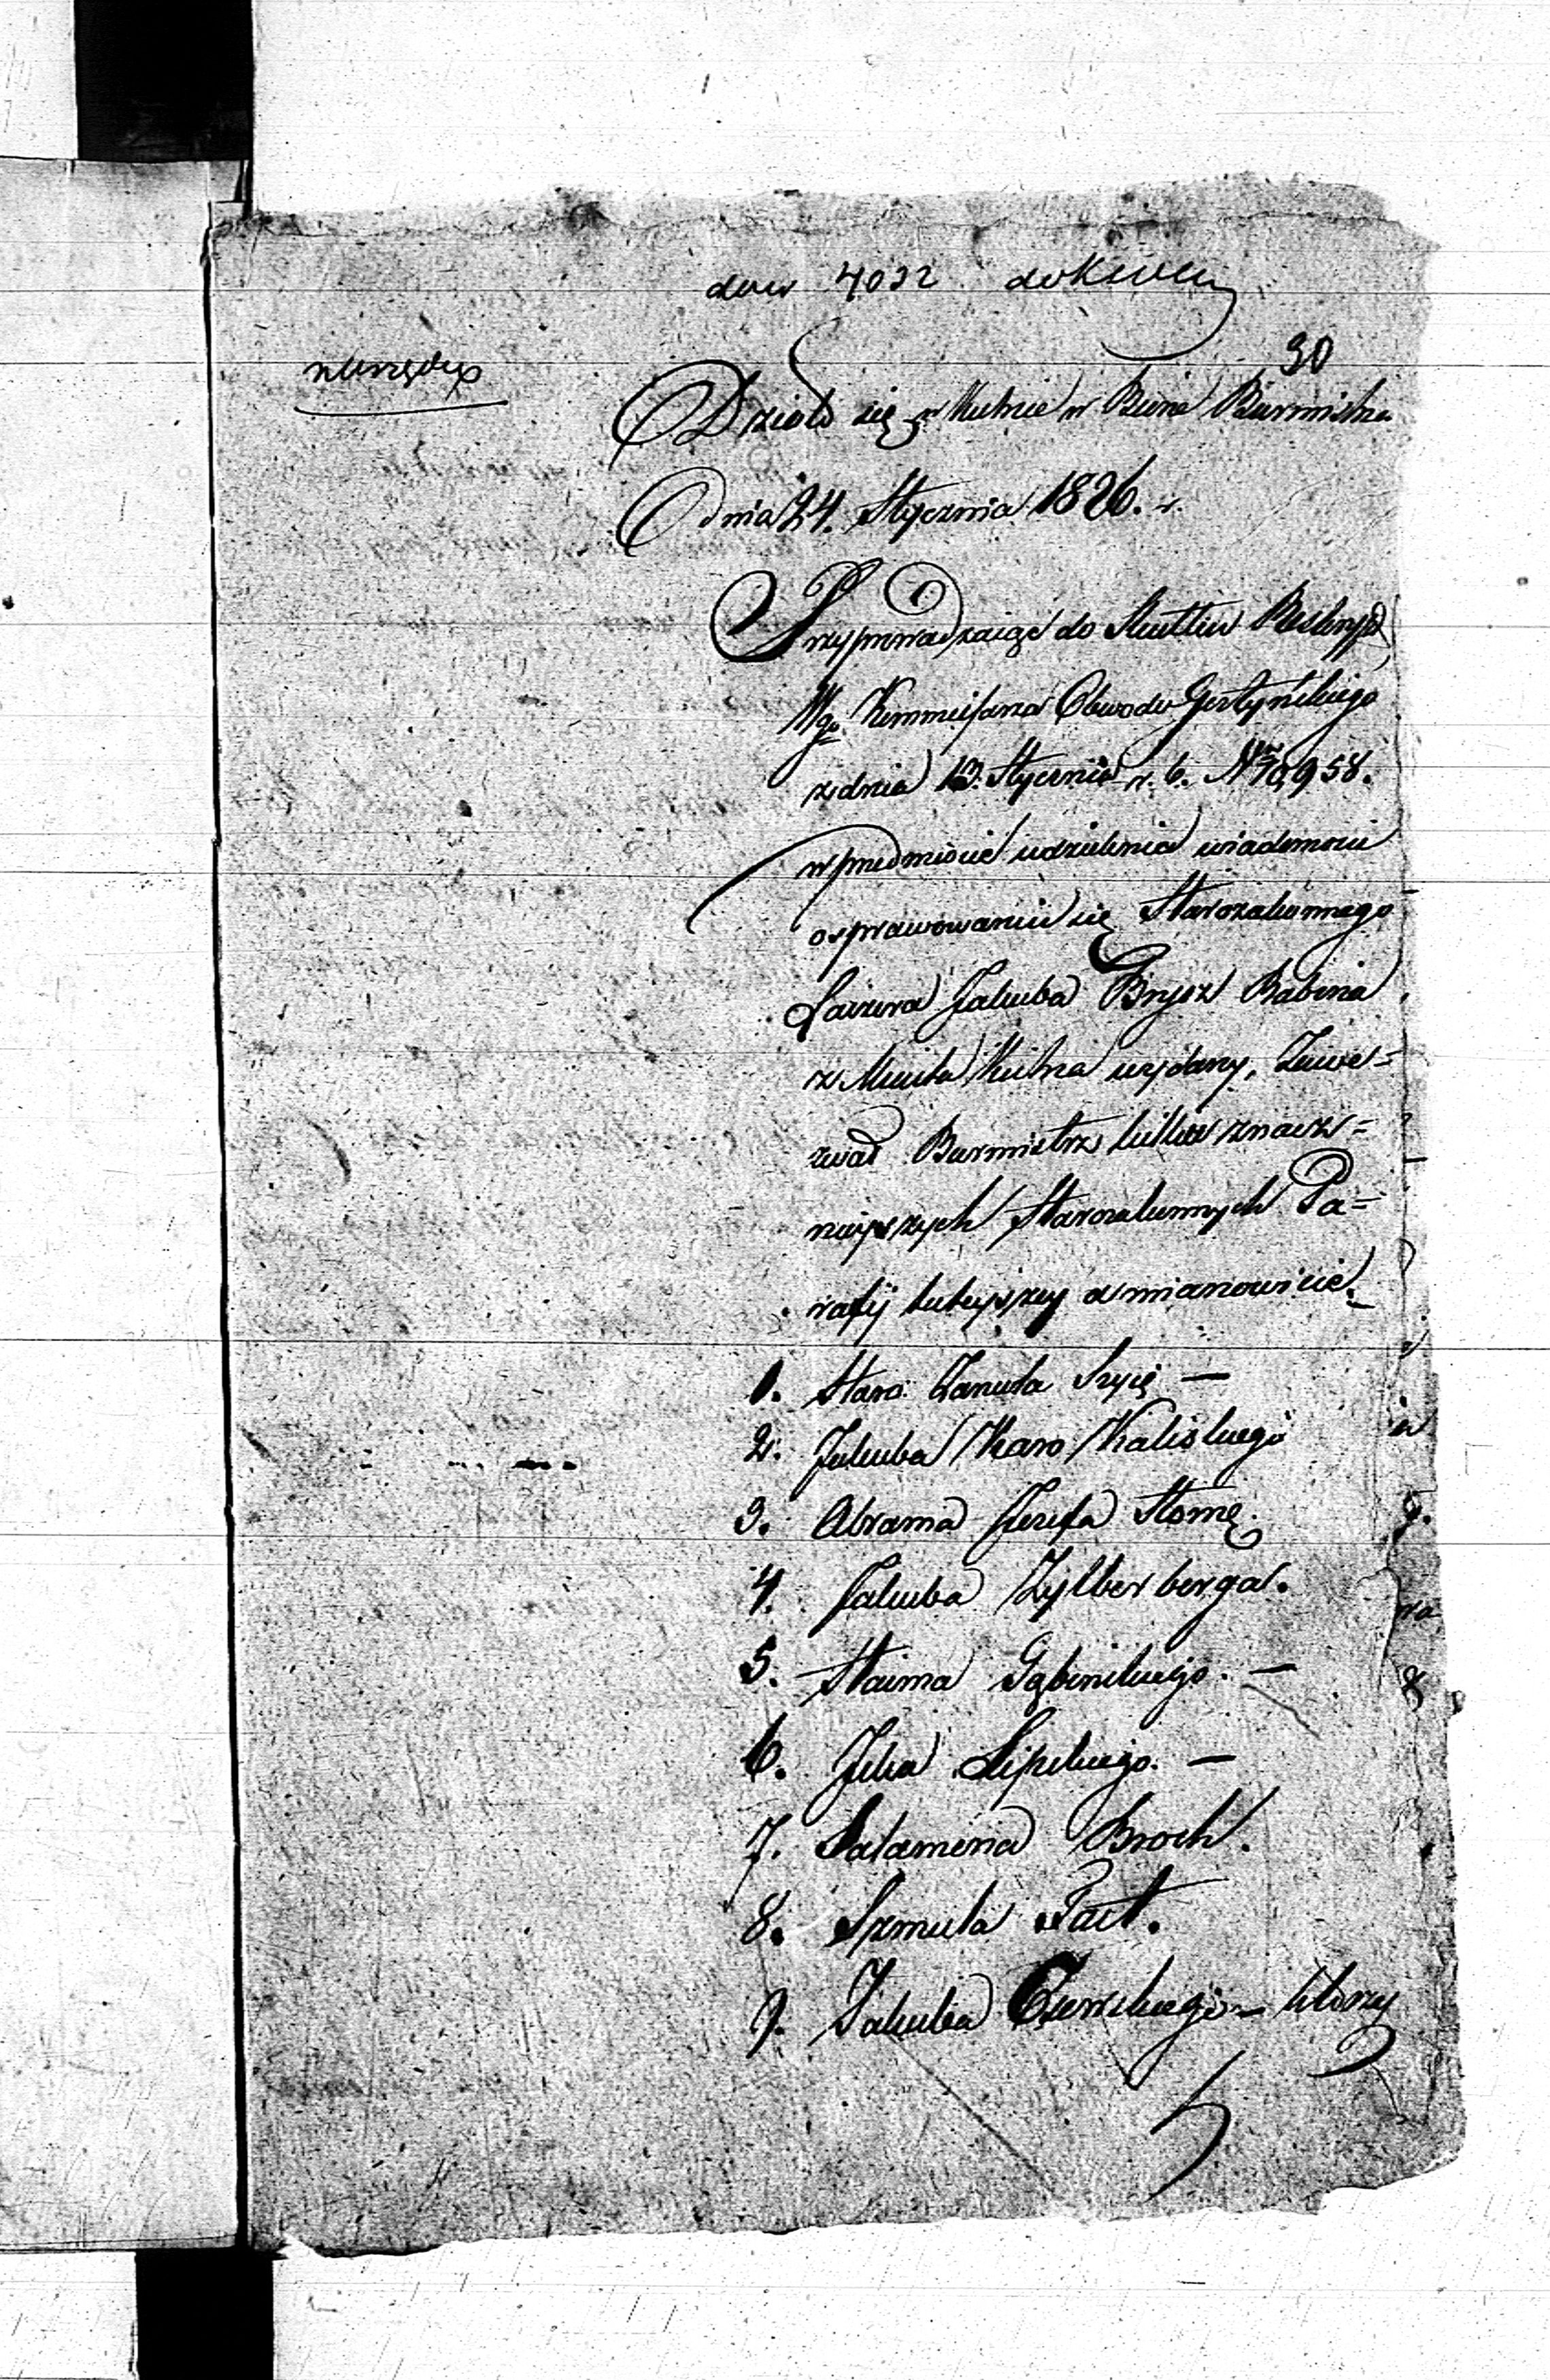 4032
30
z Urzędu
Działo się w Kutnie w Biórze Burmistrza
Dnia 24. Stycznia 1826. r.
Przyprowadzaiąc do Skutku Reskrypt
Wgo. Kommissarza Obwodu Gostynskiego
z dnia 13. Stycznia r. b. No 70,958.
w przedmiocie udzielenia wiadomosci
o sprawowaniu się Starozakonnego
Laizera Jakuba Brysz Rabina
z Miasta Kutna wydany, Zawe=
zwał Burmistrz kilku znacz=
nieyszych Starozakonnych Pa=
rafij tuteyszey a mianowicie.
1. Staro: Lanuta Szyię —
2. Jakuba Karo Kaliskiego
3. Abrama Jozefa Słomę.
4. Jakuba Zylberberga.
5. Haima Gąbinskiego. —
6. Joba Lipskiego. —
7. Salamona Broch.
8. Szmula Tait.
9. Jakuba Czerskiego — którzy